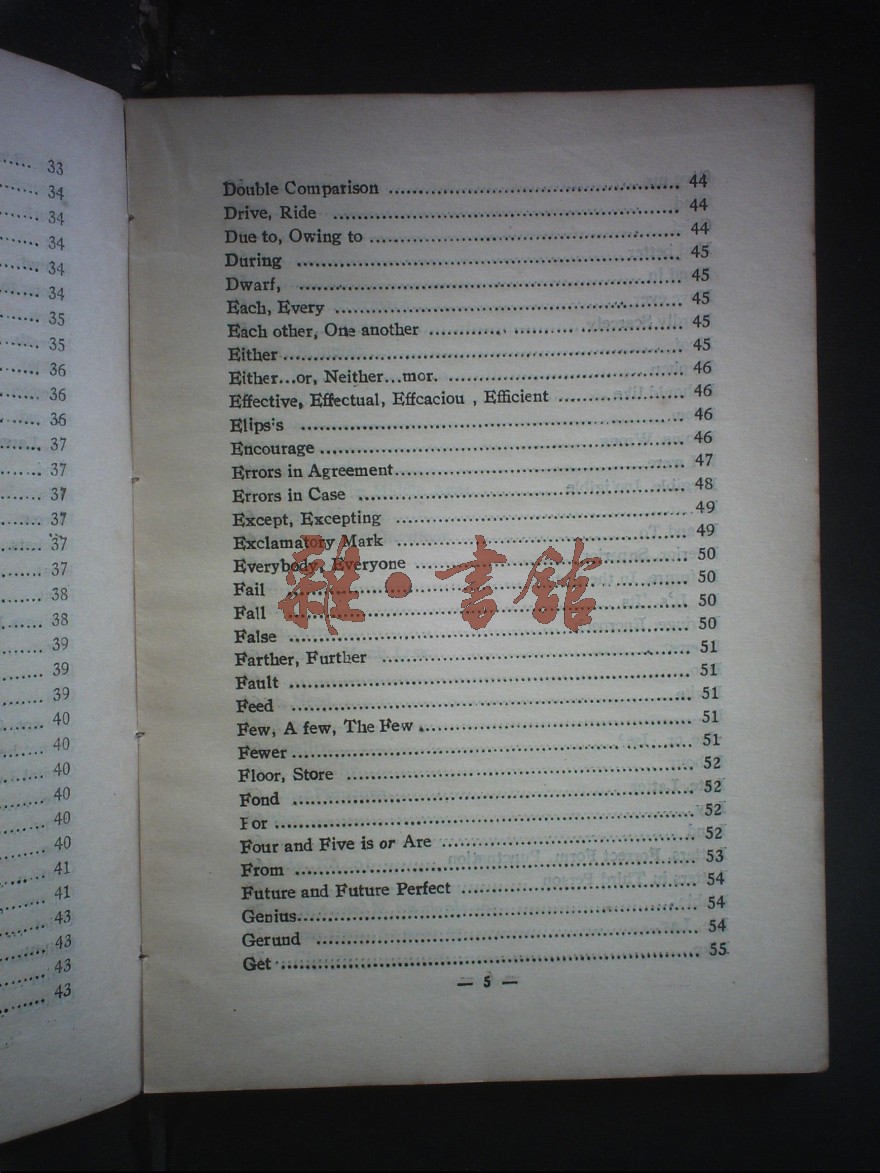 33
34
34
34
34
34
35
35
36
36
36
37
37
37
37
37
37
38
38
39
39
39
40
40
40
40
40
40
41
41
43
43
43
43
Double Comparison 44
Drive, Ride 44
Due to, Owing to 44
During 45
Dwarf, 45
Each, Every 45
Each other, One another 45
Either 45
Either...or, Neither...mor. 46
Effective, Effectual, Effcaciou , Efficient 46
Elips:s 46
Encourage 46
Errors in Agreement 47
Errors in Case 48
Except, Excepting 49
Exclamatory Mark 49
Everybody, Everyone 50
Fail 50
Fall 50
False 50
Farther, Further 51
Fault 51
Feed 51
Few, A few, The Few 51
Fewer 51
Floor, Store 52
Fond 52
For 52
Four and Five is or Are 52
From 53
Future and Future Perfect 54
Genius 54
Gerund 54
Get 55
— 5 —
雜·書館